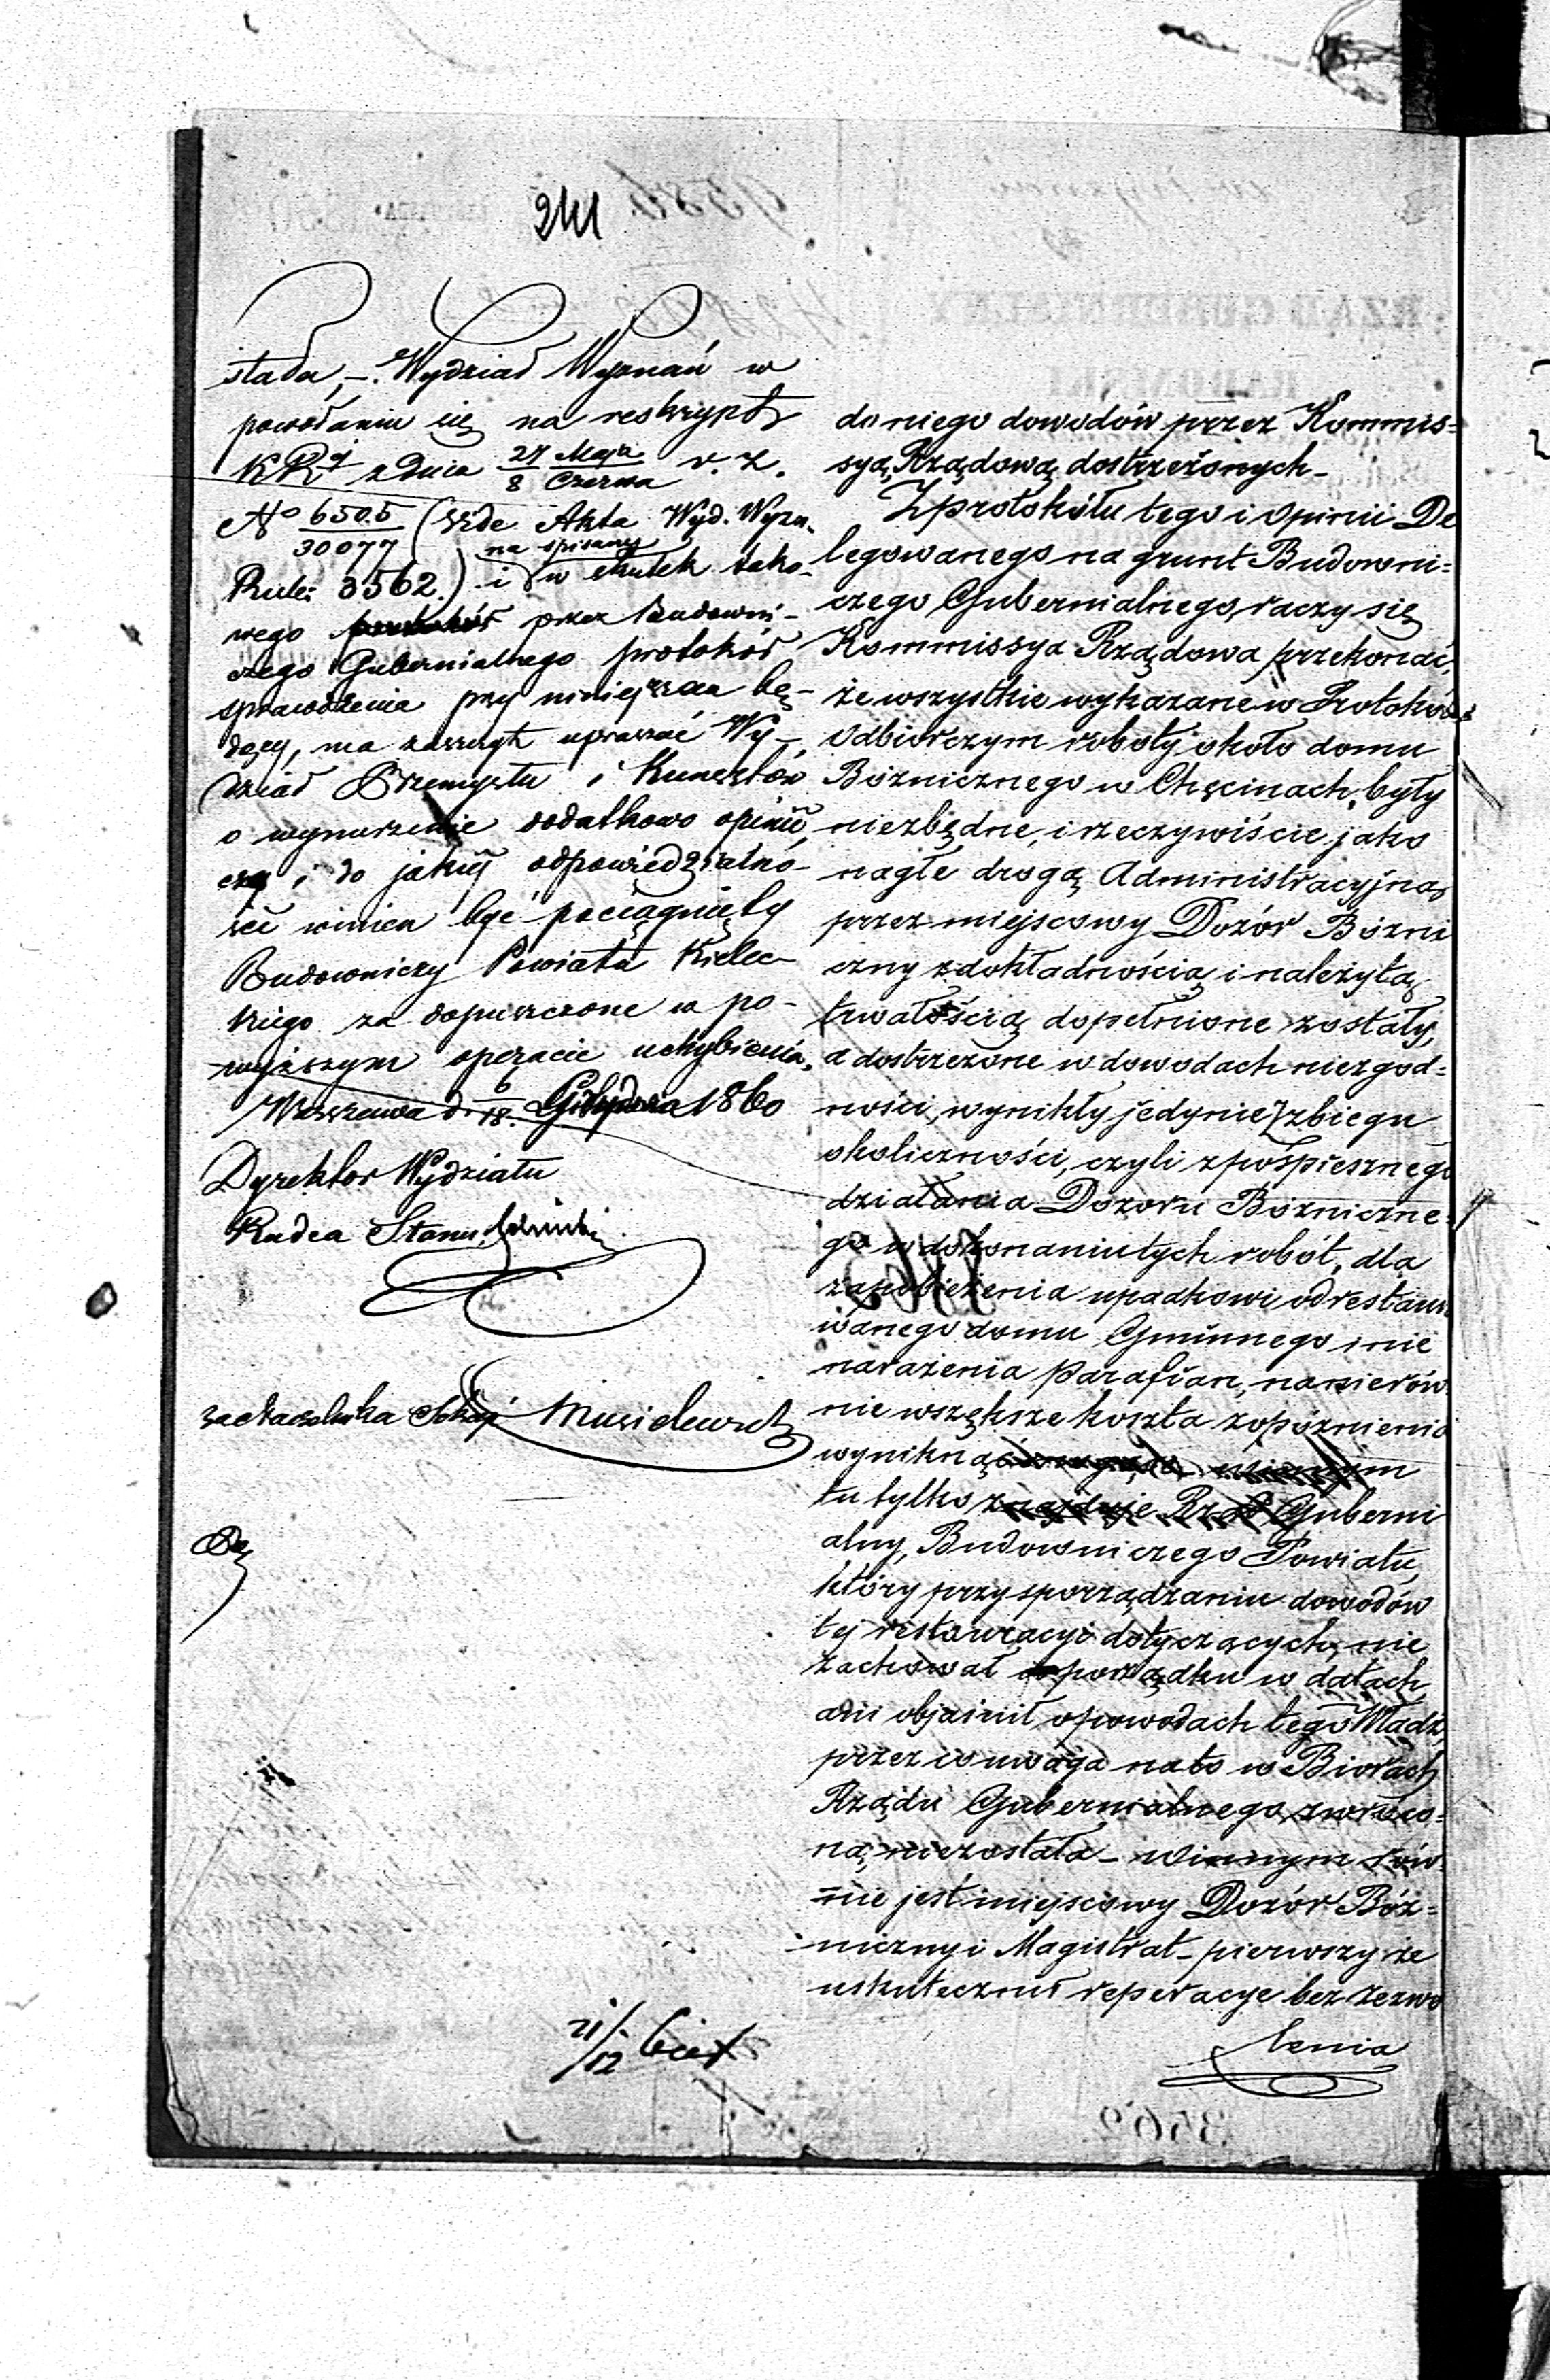 241
stała, -. Wydział Wyznań w
powołaniu się na reskrypt
KRzj z dnia 27 Maja / 8 Czerwca r. z.
No 6505 / 30077 (vide Akta Wyd. Wyzn.
na spisany
Rub: 3562.) i w skutek tako-
wego przez Budowni-
czego Gubernialnego protokół
sprawdzenia przy niniejszem bę-
dący, ma zaszczyt upraszać Wy-
dział Przemysłu i Kunsztów
o wynurzenie dodatkowo opinii
czy i do jakiej odpowiedzialno-
ści winien być pociągnięty
Budowniczy Powiatu Kielec-
kiego za dopuszczone w po-
wyższym operacie uchybienia.
Warszawa d. 6/18. Grudnia 1860
Dyrektor Wydziału
Radca Stanu
Naczelnika
21/12
do niego dowodów przez Kommis=
syą Rządową dostrzeżonych-
Z protokółu tego i opinii De
legowanego na grunt Budowni=
czego Gubernialnego, raczy się
Kommissya Rządowa przekonać,
że wszystkie wykazane w Protokóle
Odbiorczym roboty około domu
Bóżnicznego w Chęcinach, były
niezbędne, i rzeczywiście jako
nagłe drogą Administracyjną
przez miejscowy Dozór Bóżni
czny z dokładnością i należytą
trwałością dopełnione zostały,
a dostrzeżone w dowodach niezgod=
ności, wynikły jedynie z zbiegu
okoliczności, czyli z pośpiesznego
działania Dozoru Bóżniczne=
go w dokonaniu tych robót, dla
zapobieżenia upadkowi odrestauro
wanego domu Gminnego i nie
narażenia parafian, na nierów
nie większe koszta z opóźnienia
wyniknąć winnym
tu tylko znajduje Rząd Guberni
alny, Budowniczego Powiatu,
który przy sporządzaniu dowodów
tej restauracyi dotyczących, nie
zachował porządku w datach,
ani objaśnił o powodach tego Władz,
przez co uwaga na to w Biórach
Rządu Gubernialnego zwróco=
ną niezostała - Winnym rów
nie jest miejscowy Dozór Bóż=
niczny i Magistrat - pierwszy że
uskutecznił reperacye bez zezwo
lenia